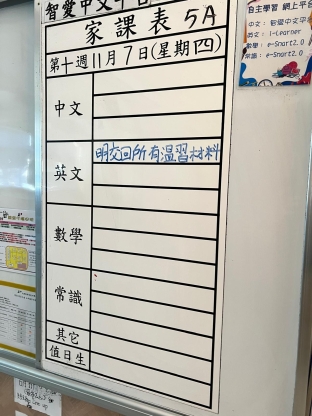 智愛中文平台
家課表 5A
第十週11月7日(星期四)
中文
英文
明交回所有溫習材料
數學
常識
其它
值日生
自主學習 網上平台
中文: 智愛中文平台
英文: i-Learner
數學: e-Smart2.0
常識: e-Smart2.0